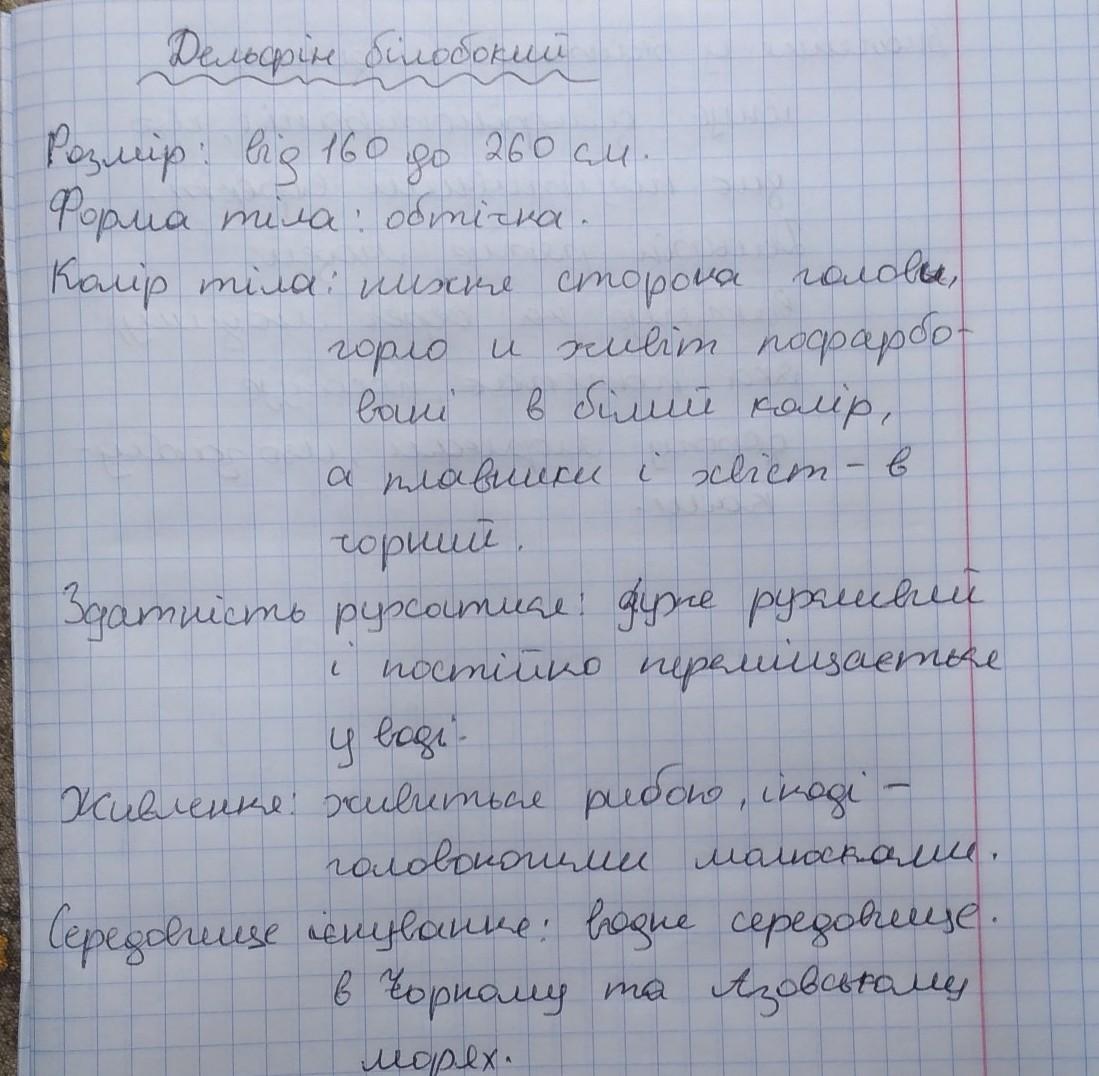 Дельфін білобокий
Розмір: від 160 до 260 см.
Форма тіла: обтічна.
Колір тіла: нижня сторона голови,
горло и живіт пофарбо-
вані в білий колір,
а плавники і хвіст - в
чорний.
Здатність рухатися: дуже рухливий
і постійно переміщається
у воді.
Живлення: живиться рибою, іноді -
головоногими молюсками.
Середовище існування: водне середовище.
в Чорному та Азовському
морях.